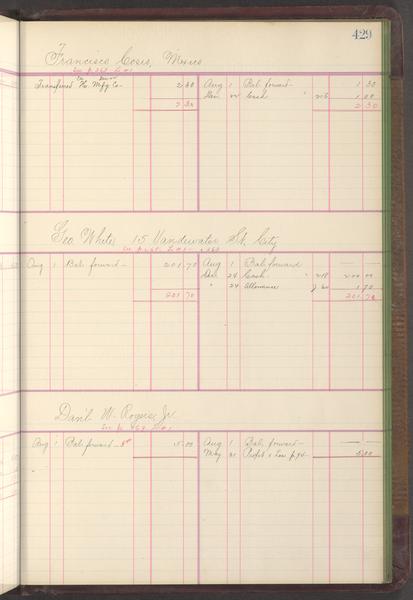 429
Francisco Cosis, Mexico
Transferred to H. Mfg Co — 2 30 Aug 1 Bal. forward — 1 30
22 Cash " 1 00
2 30 2 30
Geo. White, 15 Vandewater St. City
Aug 1 Bal. forward — 201.70 Aug 1 Bal. forward — —
Dec 24 Cash " 218 200 00
" 24 Allowance 1 70
201 70 201.70
Dan'l W. Rogers, Jr.
Aug 1 Bal. forward — 5.00 Aug 1 Bal. forward — —
May 31 Profit & Loss p. 94 — 5.00